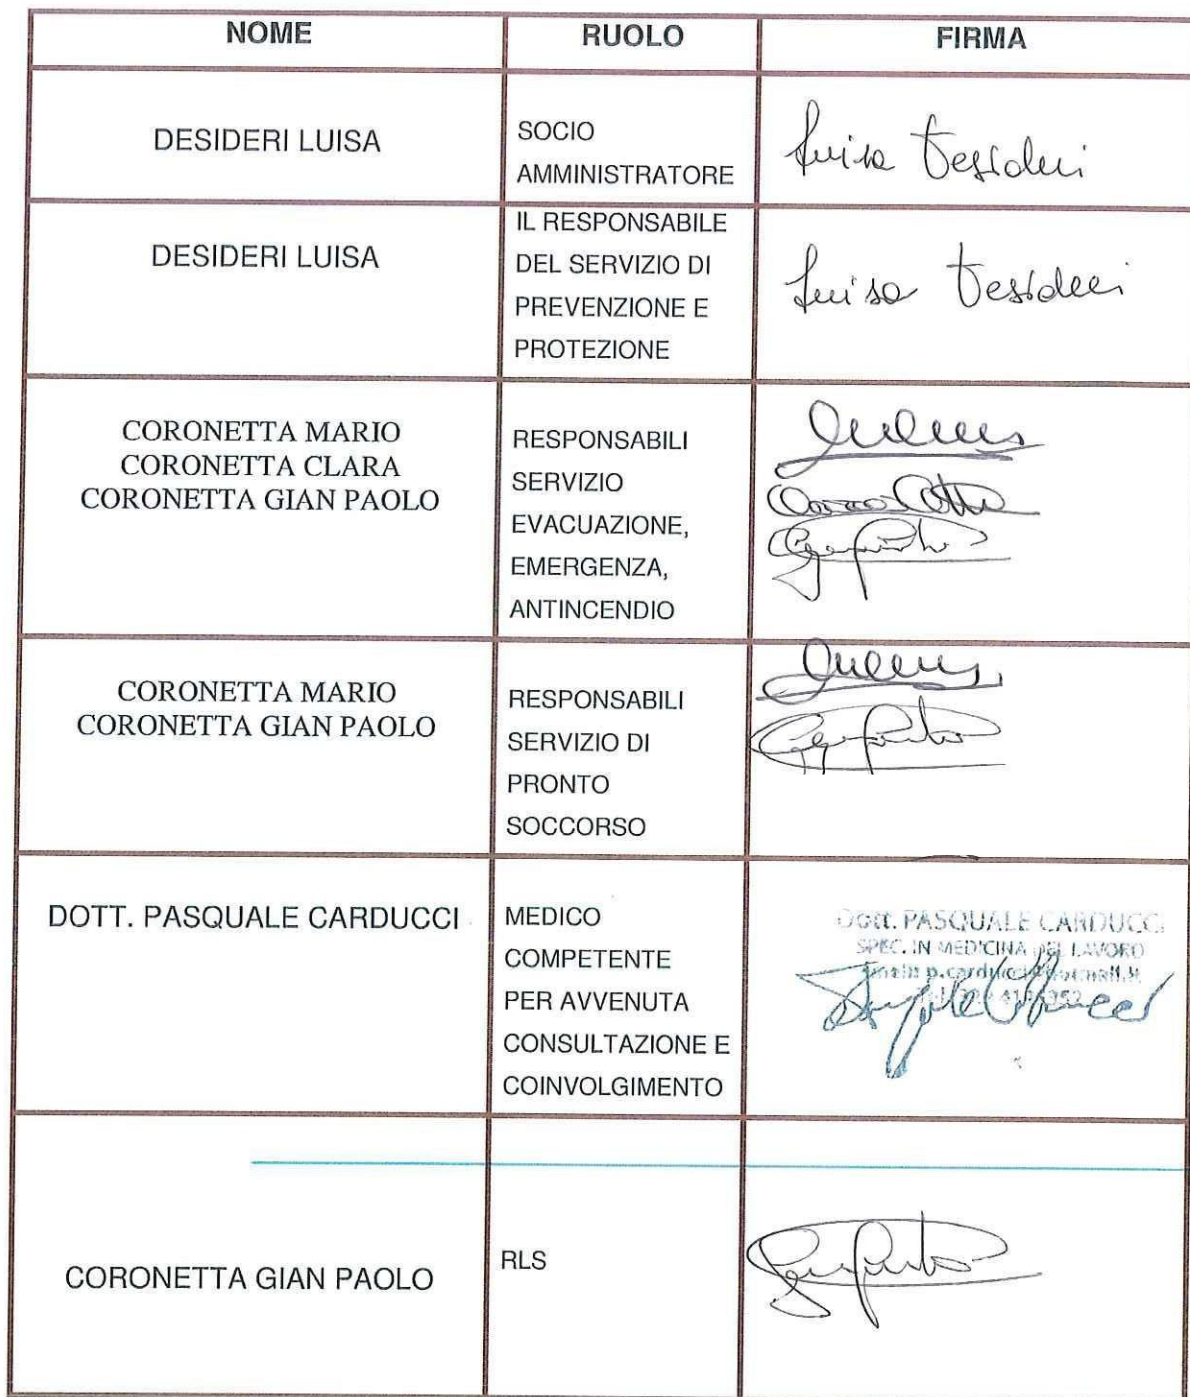 NOME RUOLO FIRMA
DESIDERI LUISA
SOCIO
AMMINISTRATORE
Luisa Desideri
DESIDERI LUISA
IL RESPONSABILE
DEL SERVIZIO DI
PREVENZIONE E
PROTEZIONE
Luisa Desideri
CORONETTA MARIO
CORONETTA CLARA
CORONETTA GIAN PAOLO
RESPONSABILI
SERVIZIO
EVACUAZIONE,
EMERGENZA,
ANTINCENDIO
CORONETTA MARIO
CORONETTA GIAN PAOLO
RESPONSABILI
SERVIZIO DI
PRONTO
SOCCORSO
DOTT. PASQUALE CARDUCCI
MEDICO
COMPETENTE
PER AVVENUTA
CONSULTAZIONE E
COINVOLGIMENTO
Dott. PASQUALE CARDUCCI
SPEC. IN MEDICINA DEL LAVORO
CORONETTA GIAN PAOLO
RLS